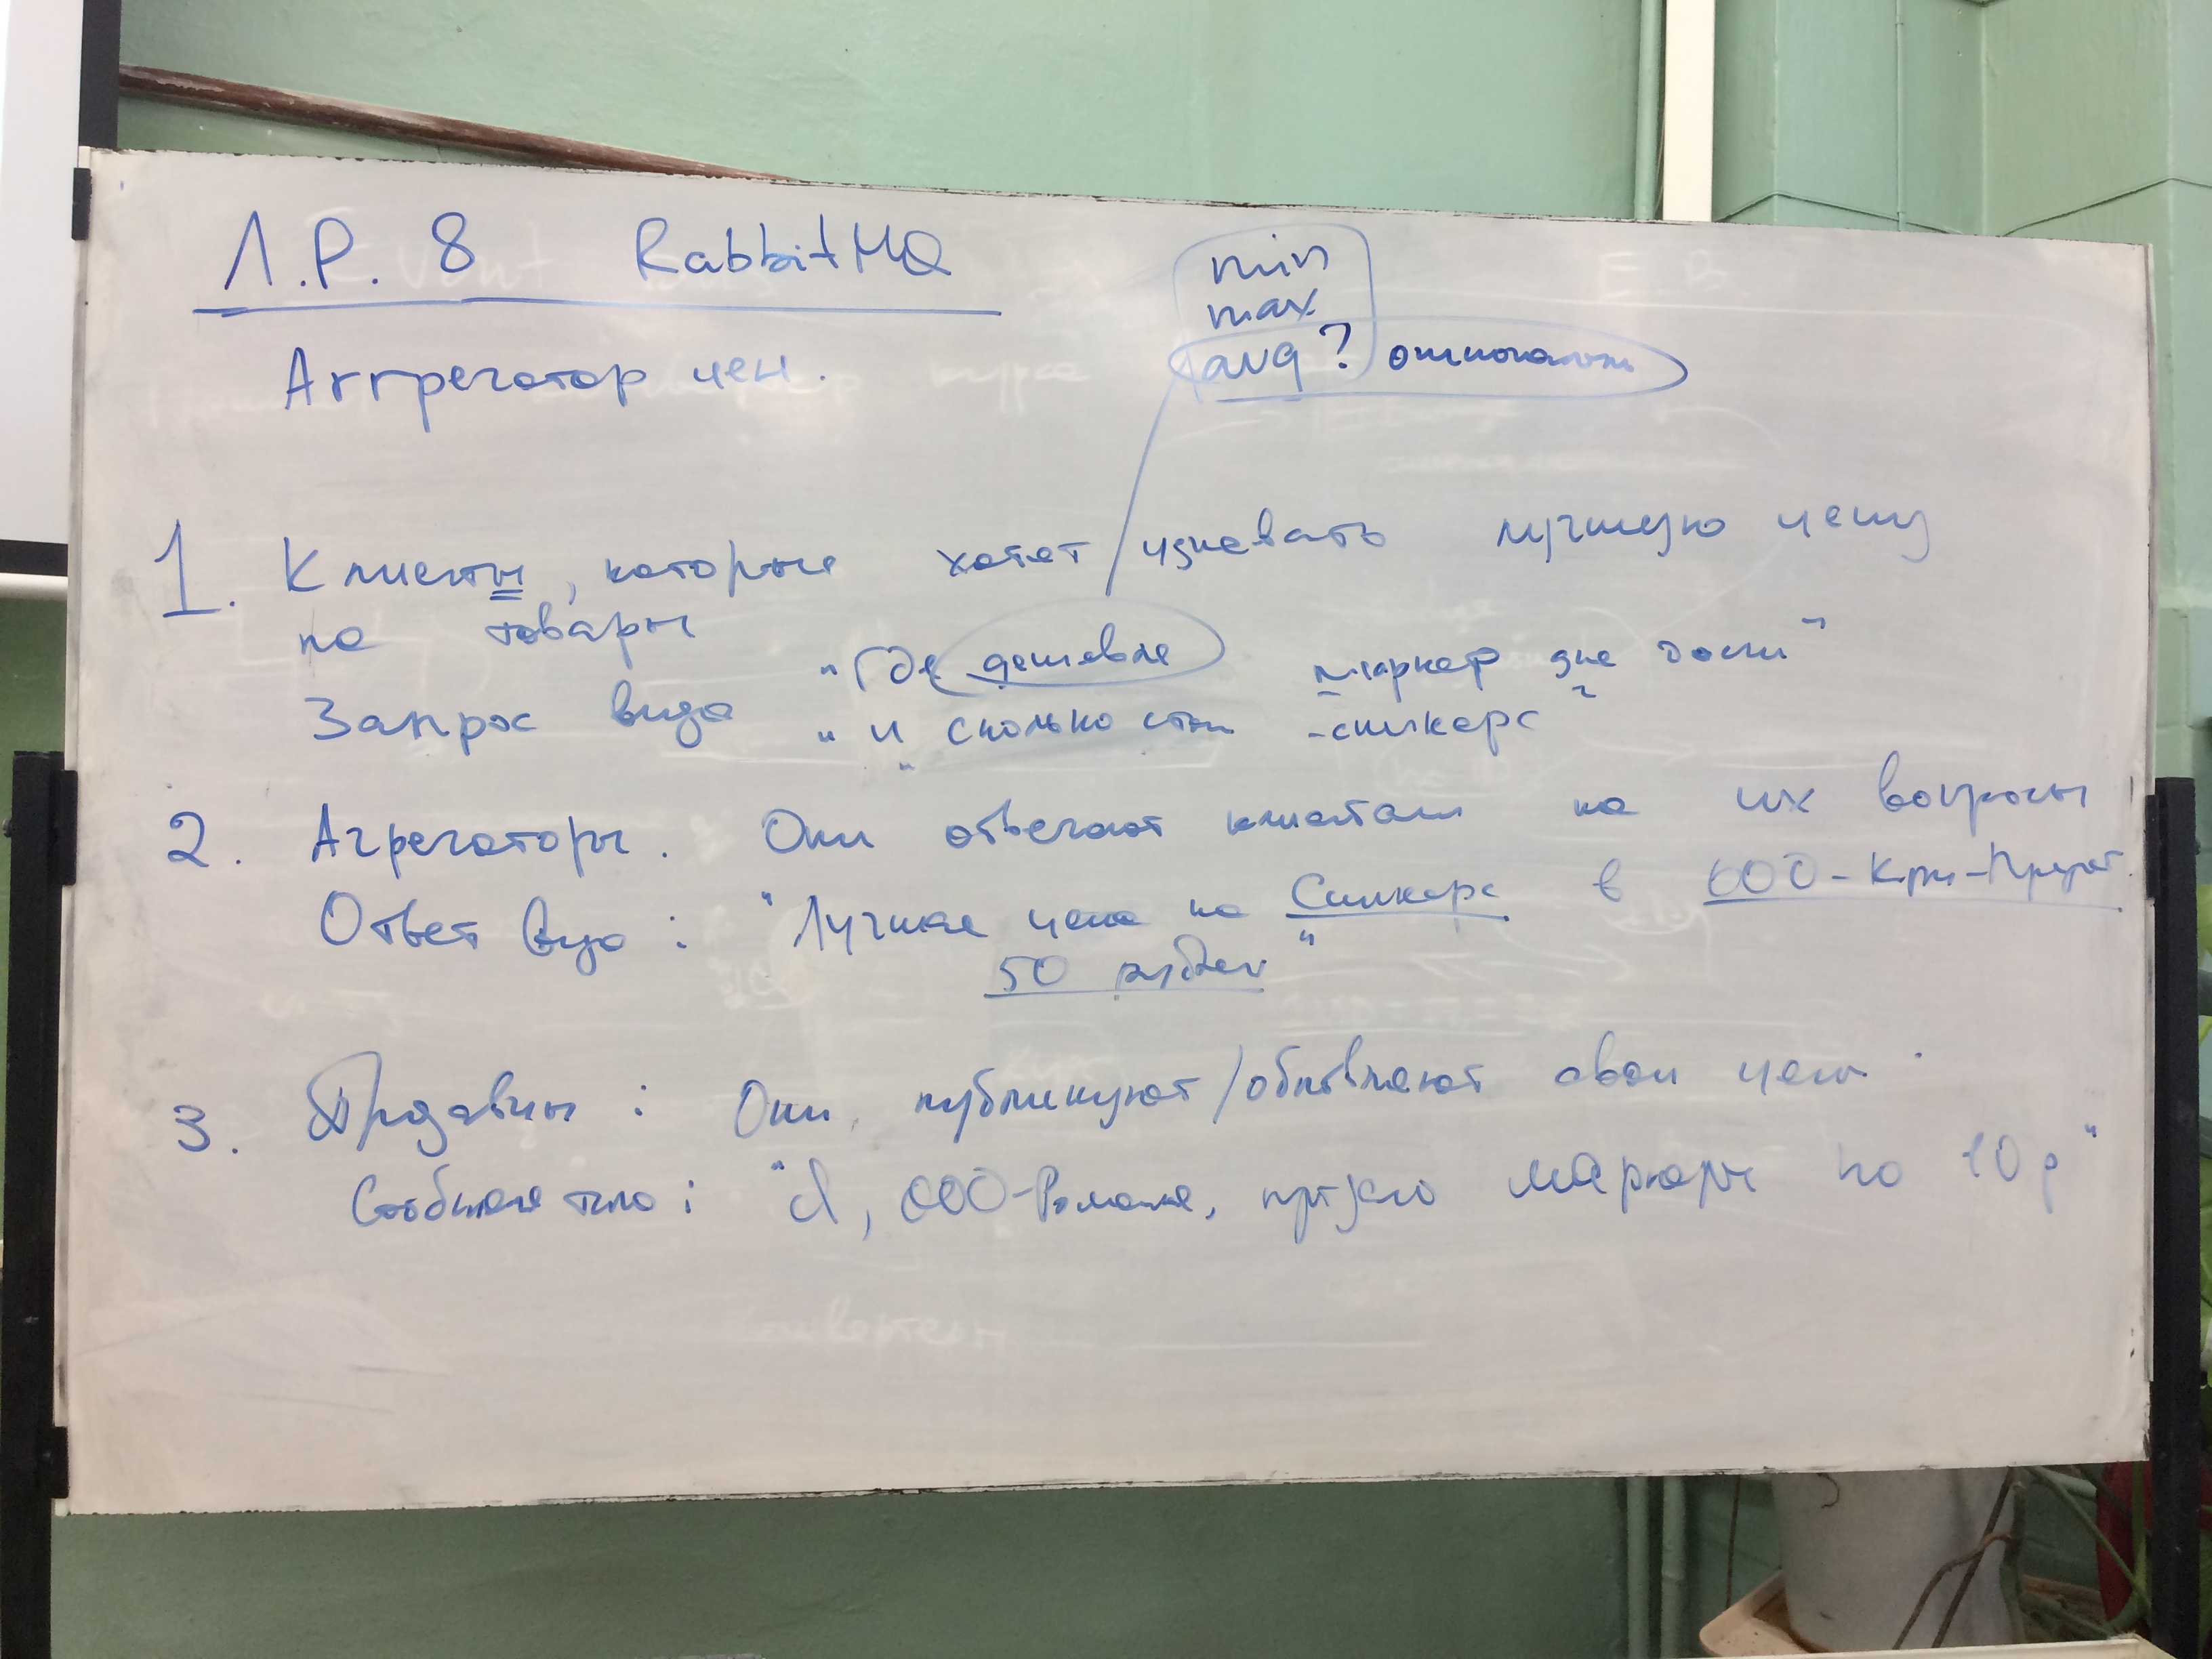 Л.Р. 8 RabbitMQ
min
max
avg? опционально
Аггрегатор цен.
1. Клиенты, которые хотят узнавать лучшую цену
на товары
Запрос вида "Где дешевле маркер для доски"
"и сколько стоит - сникерс"
2. Агрегаторы. Они отвечают клиентам на их вопросы
Ответ вида: "Лучшая цена на Сникерс в ООО-
50 рублей"
3. Продавцы: Они публикуют/обновляют свои цены
Сообщения типа: "Я, ООО-Ромашка, продаю маркеры по 10р"